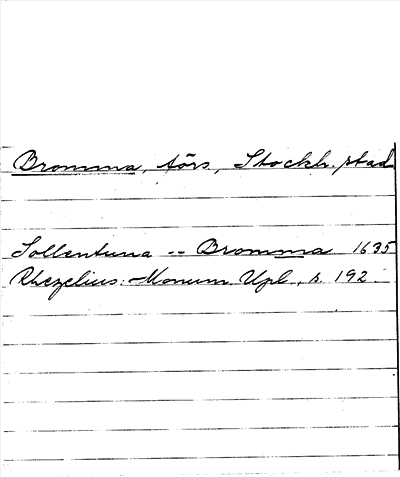 Bromma, förs., Stockh. stad
Sollentuna -- Bromma 1635
Rhezelius: Monum. Upl., s. 192.